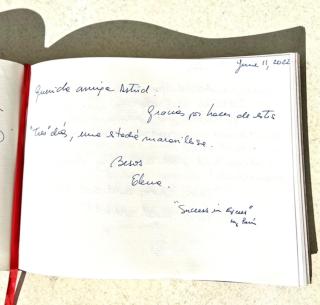 June 11, 2022
Querida amiga Astrid:
Gracias por hacer de estos
"tres" días, una estadía maravillosa.
Besos
Elena.
"Success in
by